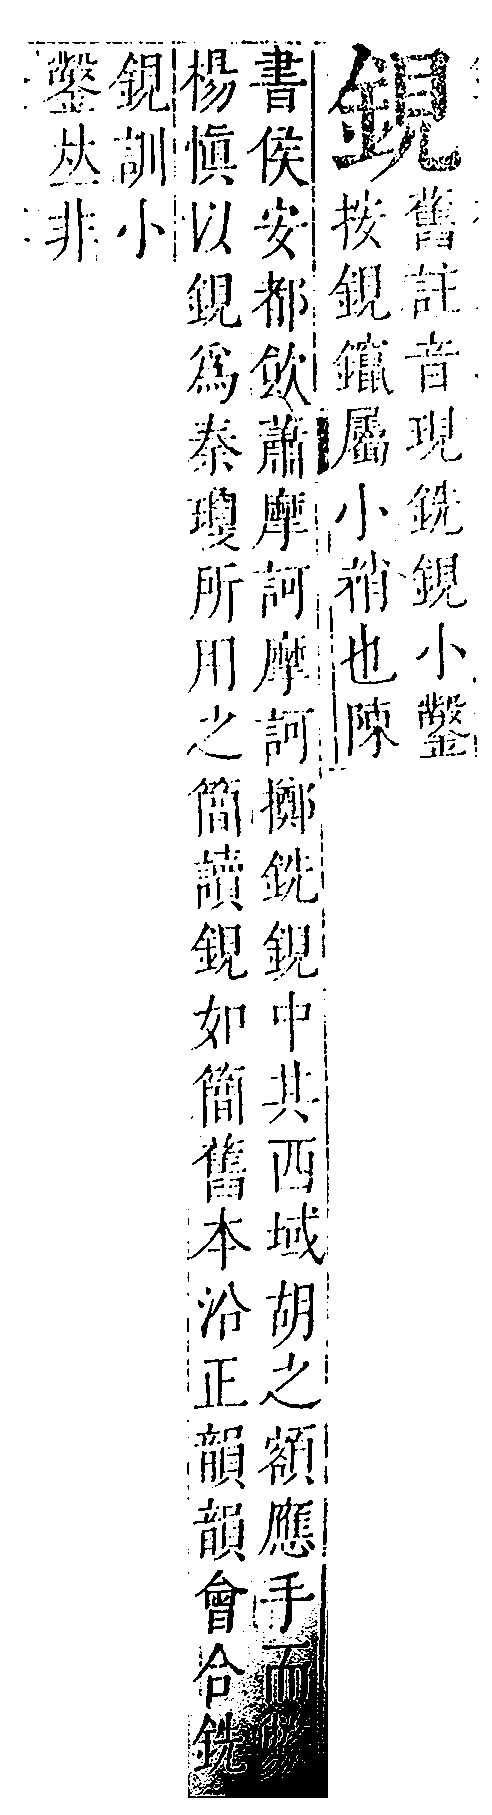 鋧
舊註音現銑鋧小鑿
按鋧鑹屬小矟也陳
書侯安都飲蕭摩訶摩訶擲銑鋧中共西域胡之額應手而
楊慎以鋧爲秦瓊所用之簡讀鋧如簡舊本沿正韻韻會合銑
鋧訓小
鑿丛非